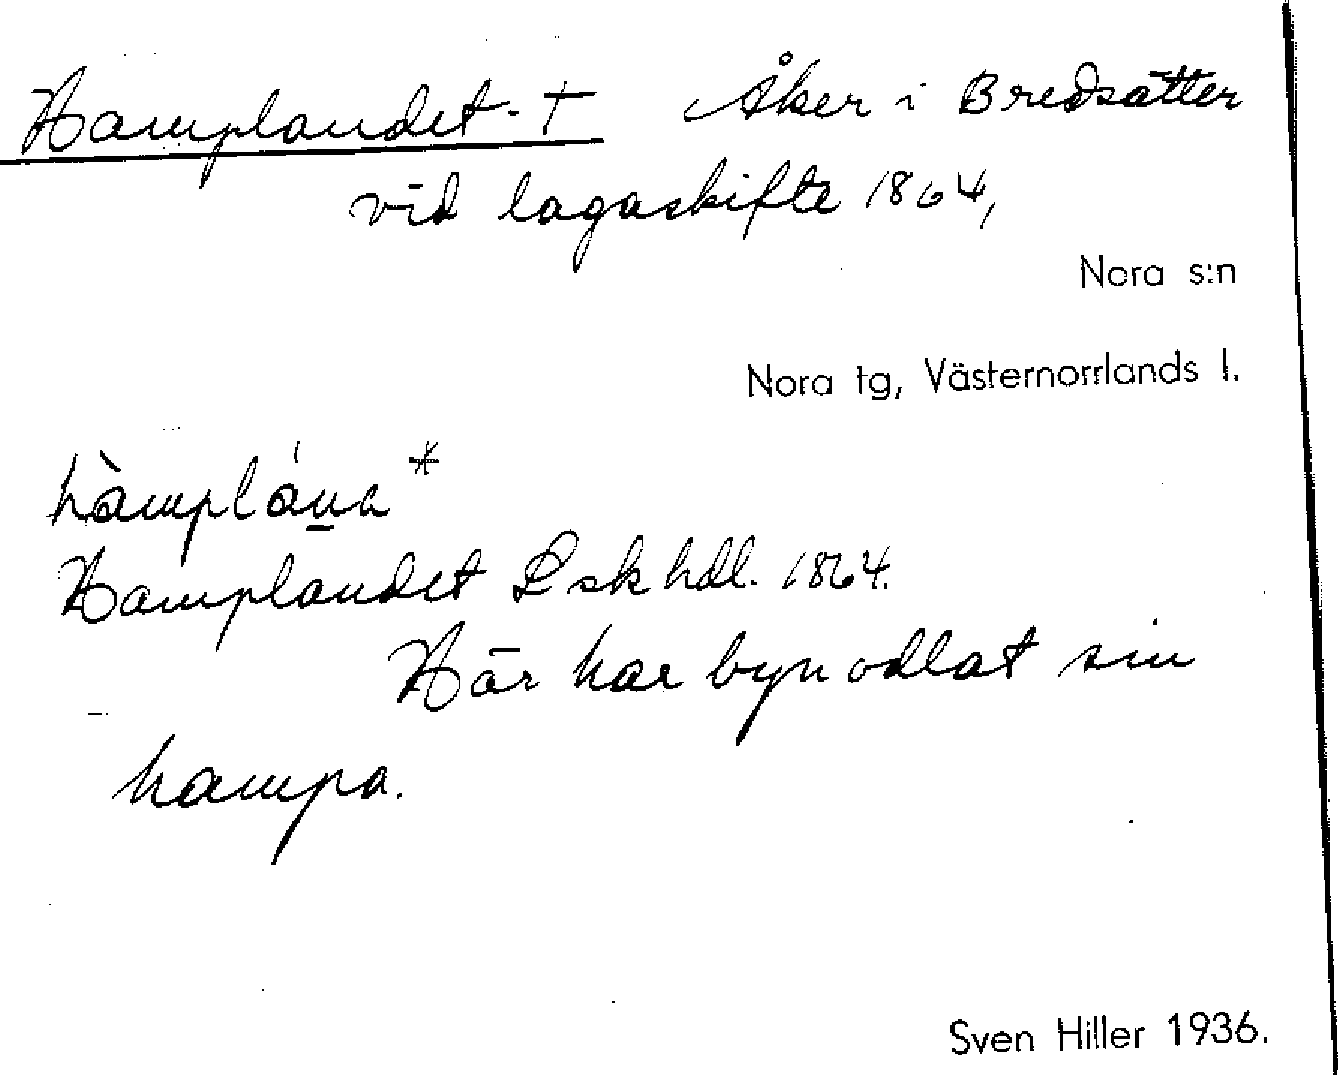 Hamplandet - † Åker i Bredsätter
vid lagaskifte 1864,
Nora s:n
Nora tg, Västernorrlands l.
hàmpláṉa *
Hamplandet Lskhdl. 1864.
Här har byn odlat sin
hampa.
Sven Hiller 1936.